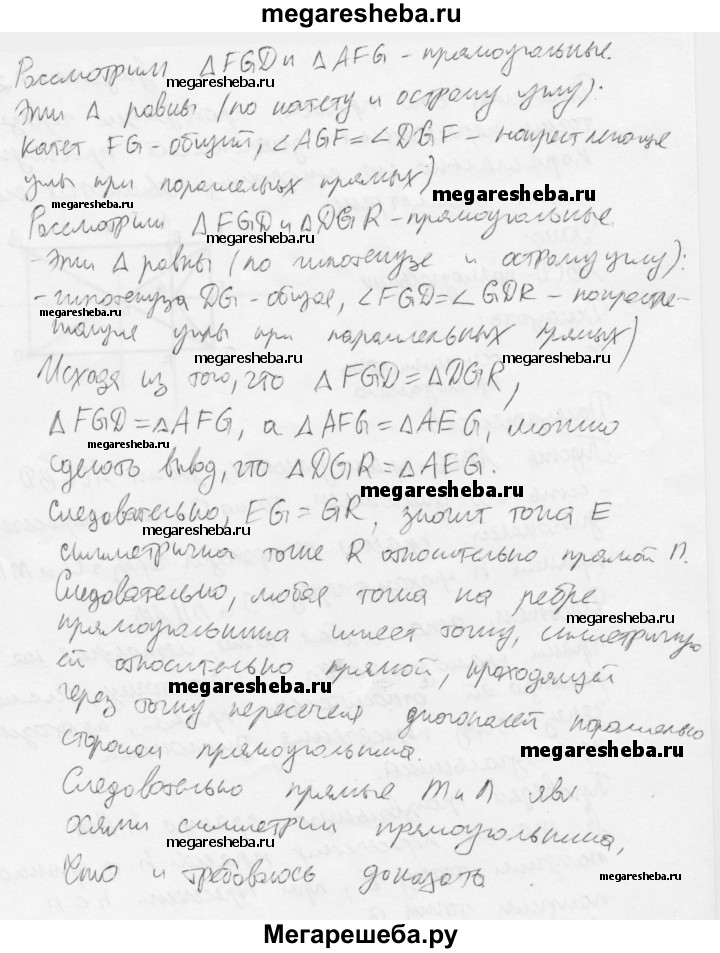 megaresheba.ru
Рассмотрим △FGD и △AFG - прямоугольные.
megaresheba.ru
Эти △ равны (по катету и острому углу):
катет FG - общий, ∠AGF = ∠DGF - накрест лежащие
megaresheba.ru
углы при параллельных прямых)
megaresheba.ru
Рассмотрим △FGD и △DGR - прямоугольные
megaresheba.ru
- Эти △ равны (по гипотенузе и острому углу):
- гипотенуза DG - общая, ∠FGD = ∠GDR - накрестле-
megaresheba.ru
жащие углы при параллельных прямых)
megaresheba.ru
megaresheba.ru
Исходя из того, что △FGD = △DGR,
△FGD = △AFG, а △AFG = △AEG, можно
megaresheba.ru
сделать вывод, что △DGR = △AEG.
megaresheba.ru
Следовательно, EG = GR, значит точка E
симметрична точке R относительно прямой n.
Следовательно, любая точка на ребре
megaresheba.ru
прямоугольника имеет точку, симметричную
ей относительно прямой, проходящей
megaresheba.ru
через точку пересечен диагоналей параллельно
сторонам прямоугольника.
megaresheba.ru
Следовательно прямые m и n явл
осями симметрии прямоугольника,
megaresheba.ru
Что и требовалось доказать
megaresheba.ru
megaresheba.ru
Мегарешеба.ру